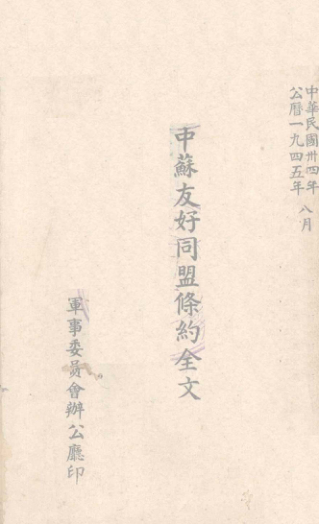 中華民國卅四年
公曆一九四五年
八月
中蘇友好同盟條約全文
軍事委員會辦公廳印